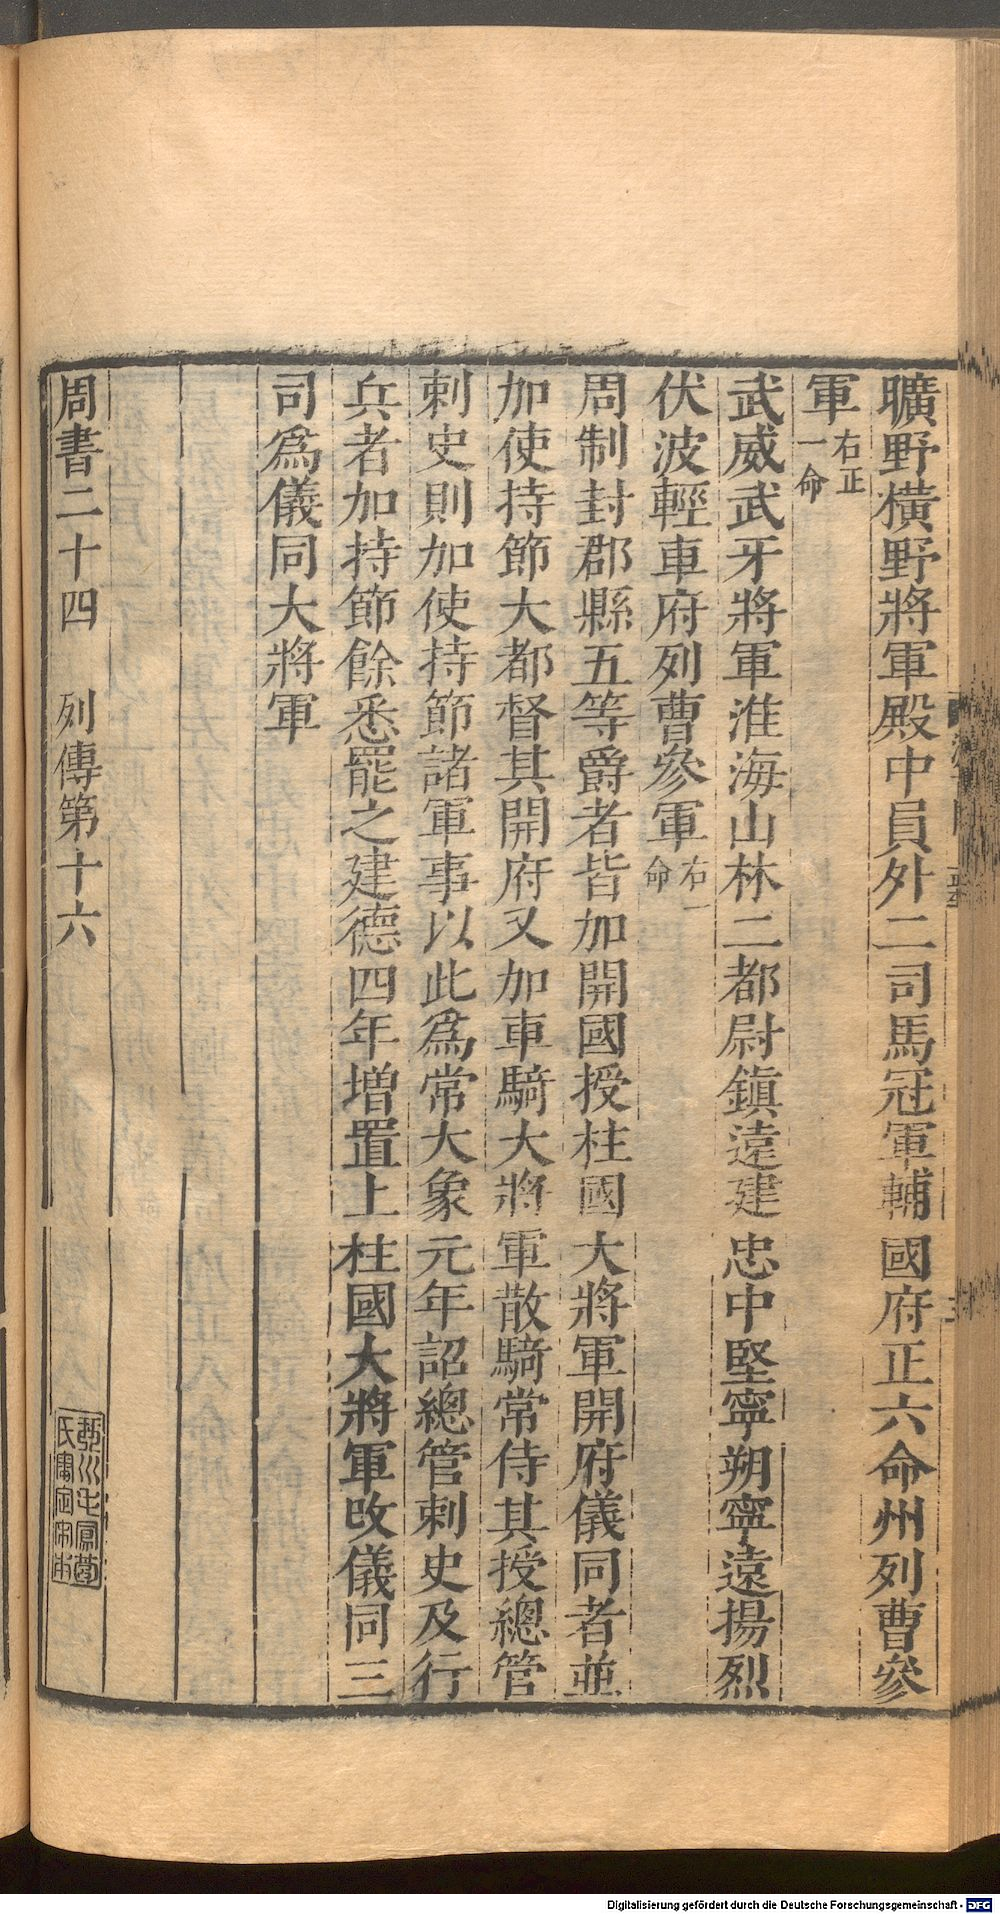 曠野橫野將軍殿中員外二司馬冠軍輔國府正六命州列曹參
軍右正一命
武威武牙將軍淮海山林二都尉鎮遠建忠中堅寧朔寧遠揚烈
伏波輕車府列曹參軍右一命
周制封郡縣五等爵者皆加開國授柱國大將軍開府儀同者並
加使持節大都督其開府又加車騎大將軍散騎常侍其授總管
刺史則加使持節諸軍事以此爲常大象元年詔總管刺史及行
兵者加持節餘悉罷之建德四年增置上柱國大將軍改儀同三
司爲儀同大將軍
周書二十四 列傳第十六
琴川毛鳳苞
氏審定宋本
Digitalisierung gefördert durch die Deutsche Forschungsgemeinschaft - DFG